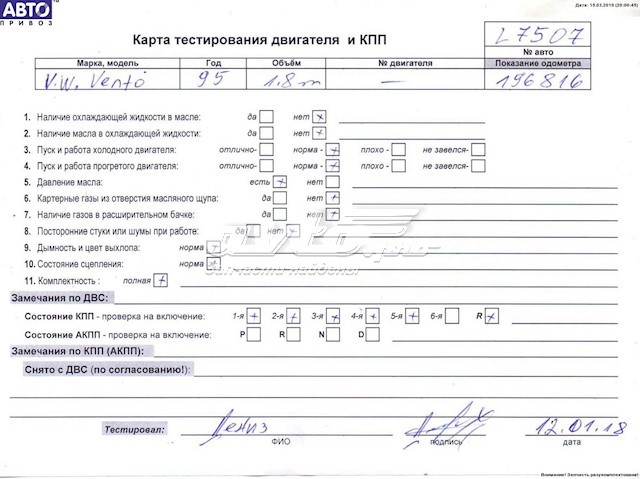 АВТО
ПРИВОЗ
Дата: 15.03.2019 (20:00:45)
Карта тестирования двигателя и КПП
L7507
№ авто
Марка, модель Год Объём № двигателя Показание одометра
V.W. Vento 95 1.8 m — 196816
1. Наличие охлаждающей жидкости в масле: да нет +
2. Наличие масла в охлаждающей жидкости: да нет +
3. Пуск и работа холодного двигателя: отлично- норма - + плохо - не завелся-
4. Пуск и работа прогретого двигателя: отлично- норма - + плохо - не завелся-
5. Давление масла: есть + нет
6. Картерные газы из отверстия масляного щупа: да нет +
7. Наличие газов в расширительном бачке: да нет +
8. Посторонние стуки или шумы при работе: да нет +
9. Дымность и цвет выхлопа: норма +
10. Состояние сцепления: норма +
11. Комплектность : полная +
avto.pro
Запчасти найдены
Замечания по ДВС:
Состояние КПП - проверка на включение: 1-я + 2-я + 3-я + 4-я + 5-я + 6-я R +
Состояние АКПП - проверка на включение: P R N D
Замечания по КПП (АКПП):
Снято с ДВС (по согласованию!):
Тестировал: Дениз 12.01.18
ФИО подпись дата
Внимание! Запчасть разукомплектована!